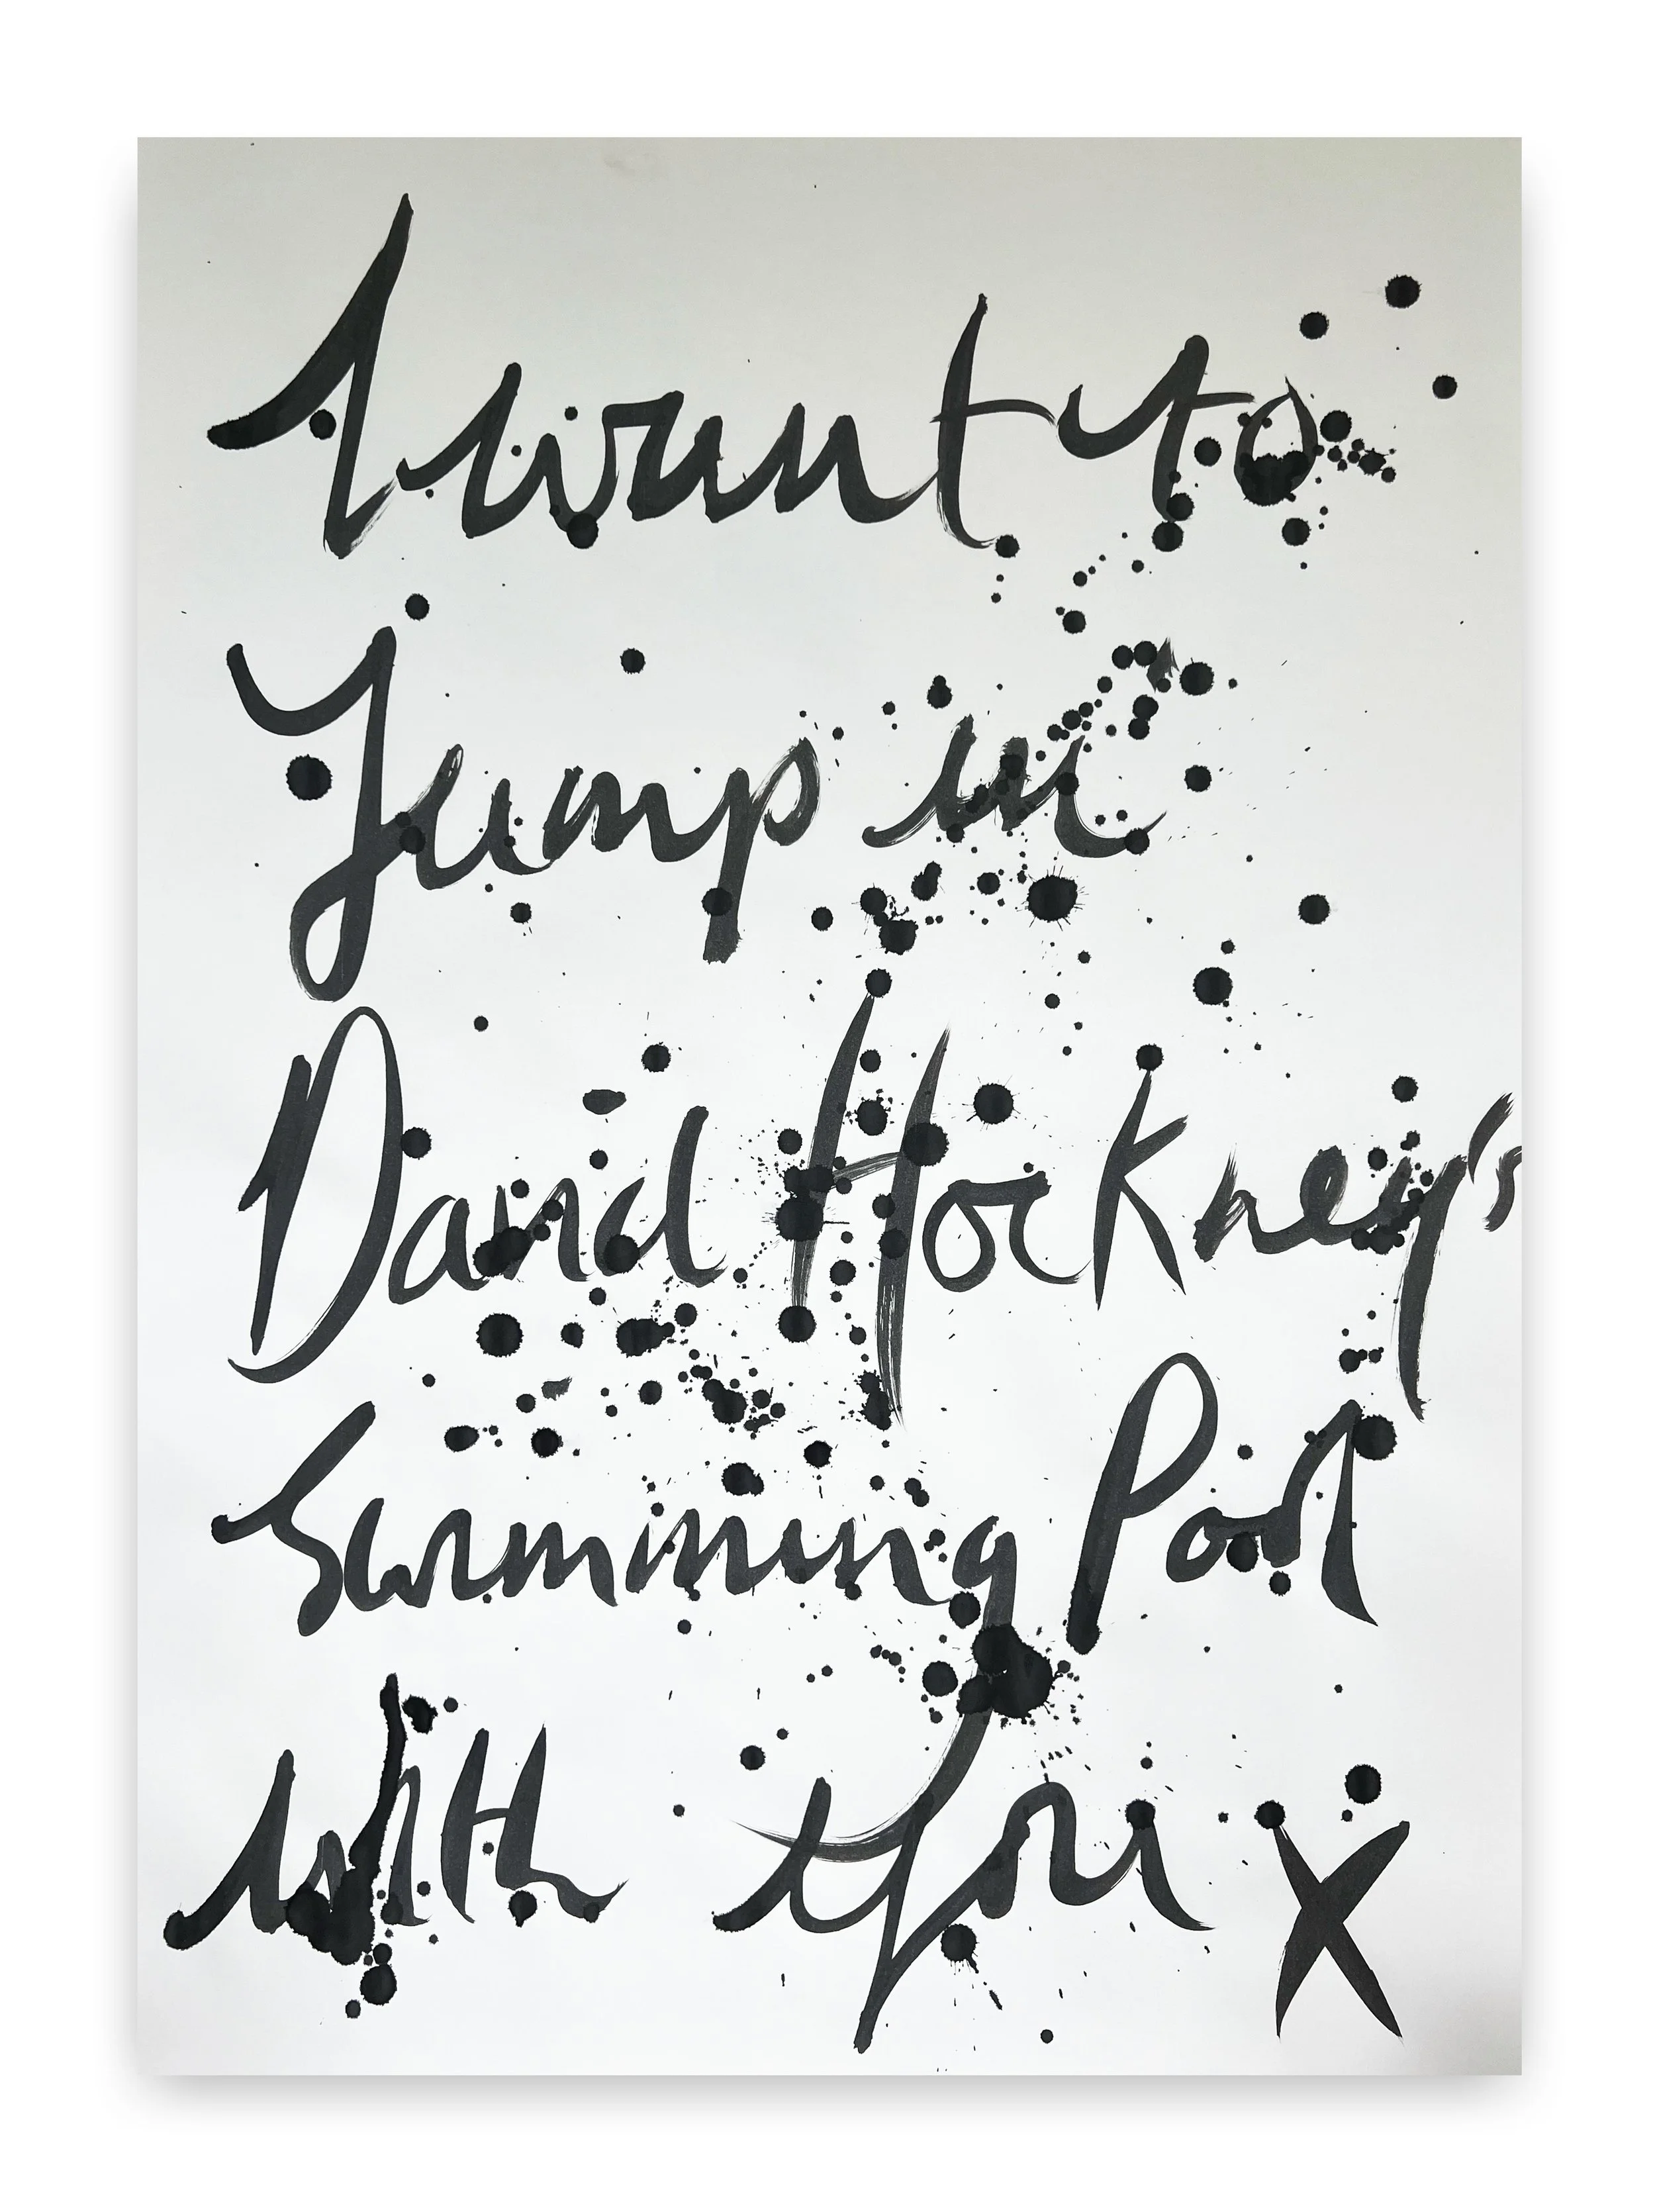 I want to
Jump in
David Hockney's
Swimming Pool
With you x